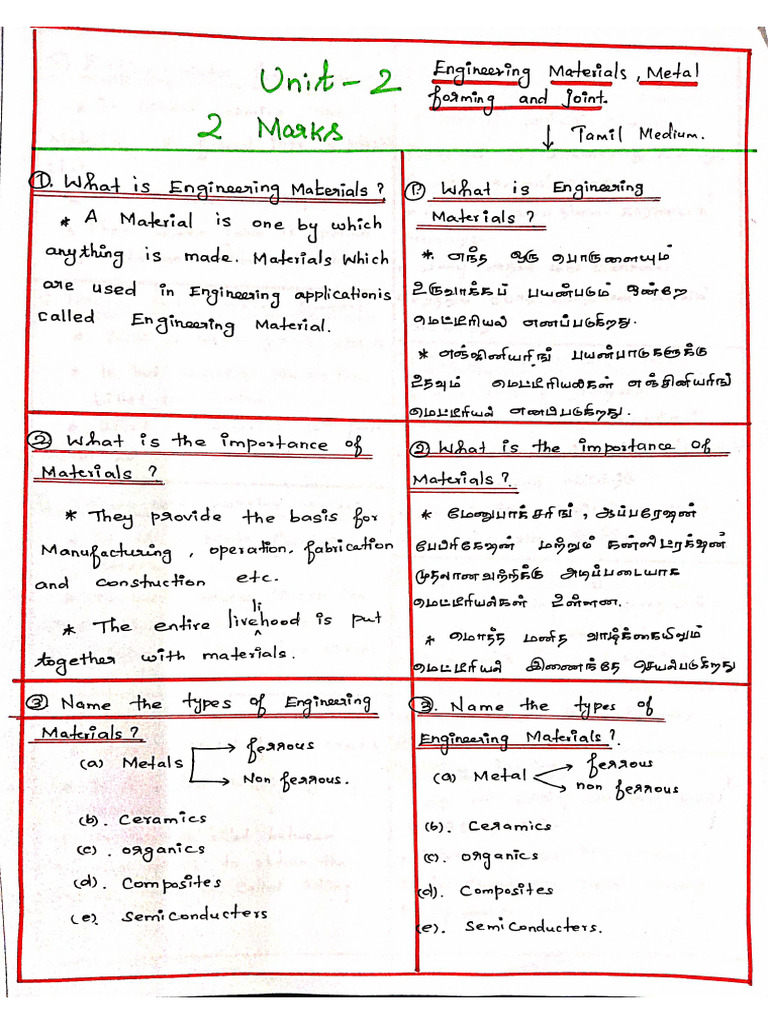 Unit - 2
2 Marks
Engineering Materials, Metal
forming and Joint.
↓ Tamil Medium.
①. What is Engineering Materials?
* A Material is one by which
anything is made. Materials which
are used in Engineering applicationis
called Engineering Material.
①. What is Engineering
Materials?
* எந்த ஒரு பொருளையும்
உருவாக்கப் பயன்படும் ஒன்றே
மெட்டீரியல் எனப்படுகிறது.
* எஞ்சினியரிங் பயன்பாடுகளுக்கு
உதவும் மெட்டீரியல்கள் எஞ்சினியரிங்
மெட்டீரியல் எனப்படுகிறது.
② What is the importance of
Materials?
* They provide the basis for
Manufacturing, operation, fabrication
and construction etc.
* The entire livelihood is put
together with materials.
② What is the importance of
Materials?.
* மேனுபாக்சரிங், ஆப்பரேஷன்
பேப்ரிகேஷன் மற்றும் கன்ஸ்ட்ரக்ஷன்
முதலானவற்றிக்கு அடிப்படையாக
மெட்டீரியல்கள் உள்ளன.
* மொத்த மனித வாழ்க்கையிலும்
மெட்டீரியல் இணைந்தே செயல்படுகிறது
③. Name the types of Engineering
Materials?
(a) Metals → ferrous
→ Non ferrous.
(b). Ceramics
(c). organics
(d). Composites
(e). Semiconducters
③. Name the types of
Engineering Materials?.
(a) Metal → ferrous
→ non ferrous
(b). Ceramics
(c). organics
(d). Composites
(e). Semiconducters.